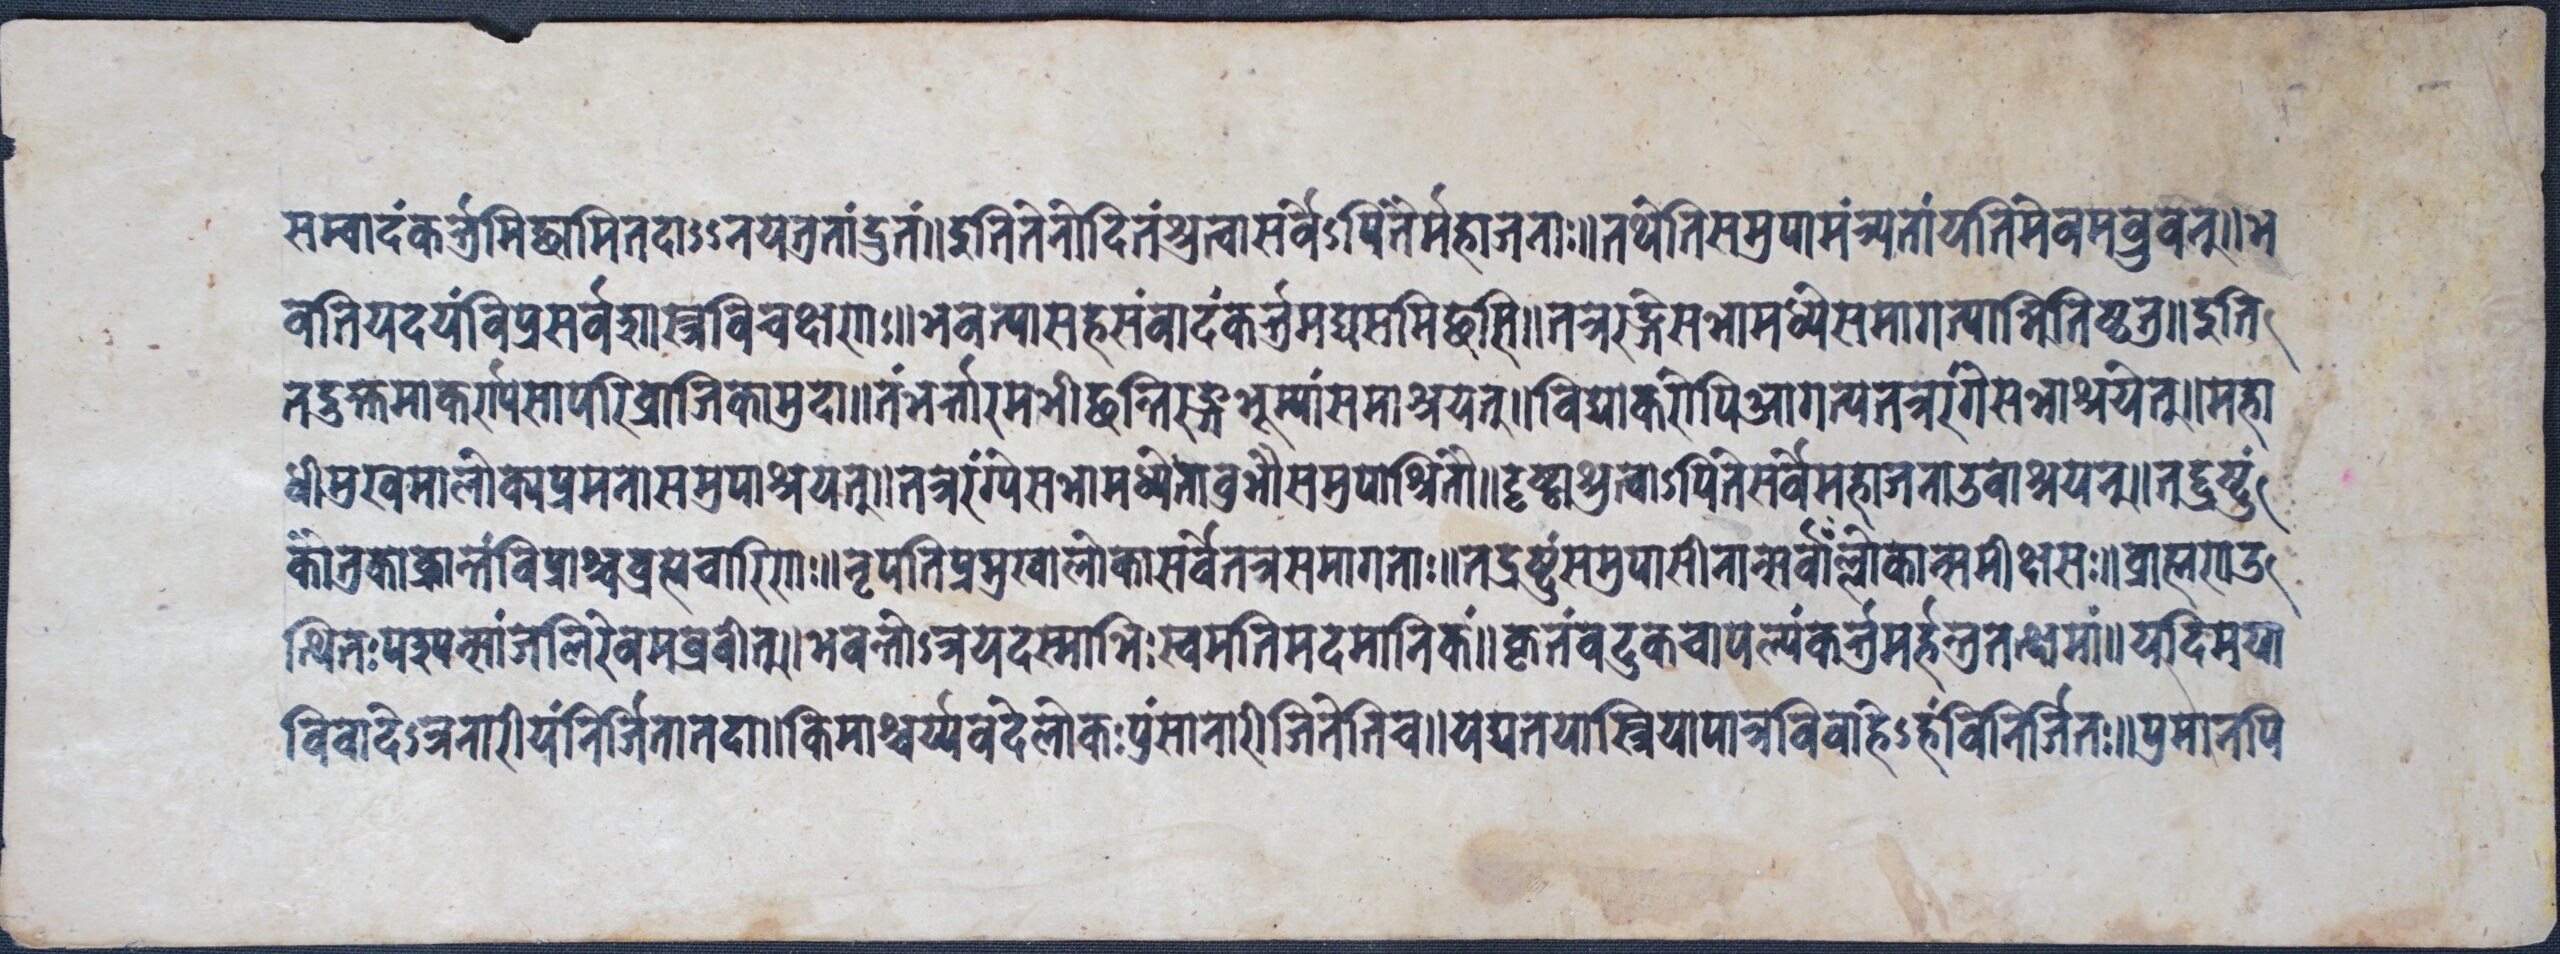 सम्वादंकर्त्तुमिछामितदाऽऽनयतुतांद्रुतं॥इतितेनोदितंश्रुत्वासर्वेऽपितेर्महाजनाः॥तथेतिसमुपामंत्र्यतांयतिमेवमब्रुवन्॥भ
वतियदयंविप्रसर्वशास्त्रविचक्षणः॥भवत्यासहसंवादंकर्त्तुमद्यसमिछसि॥तत्ररङ्गेसभामध्येसमागत्याभितिष्ठतु॥इति
तदुक्तमाकर्ण्यसापरिव्राजिकामुदा॥तंभर्त्तारमभीछन्तिरङ्गभूम्यांसमाश्रयत्॥विद्याकरोपिआगत्यतत्ररंगेसभाश्रयेत्॥महा
धीमुखमालोक्यप्रमनासमुपाश्रयत्॥तत्ररंगेपिसभामध्येतावुभौसमुपाश्रितौ॥दृष्ट्वाश्रुत्वाऽपितेसर्वेमहाजनाउवाश्रयन्॥तद्द्रुष्टुं
कौतुकाक्रान्तंविप्राश्चब्रह्मचारिणः॥नृपतिप्रमुखालोकासर्वेतत्रसमागताः॥तद्रष्टुंसमुपासीनान्सर्वांल्लोकान्समीक्षसः॥ब्राह्मणउ
त्थितःपश्यन्सांजलिरेवमब्रवीत्॥भवन्तोऽत्रयदस्माभिःस्वमतिमदमानिकं॥कृतंवटुकचापल्यंकर्त्तुमर्हन्तुतत्क्षमां॥यदिमया
विवादेऽत्रनारीयंनिर्जितातदा॥किमाश्चर्य्यवदेलोकःपुंसानारीजितेतिच॥यद्यतयास्त्रियापात्रविवाहेऽहंविनिर्जितः॥पुमानपि